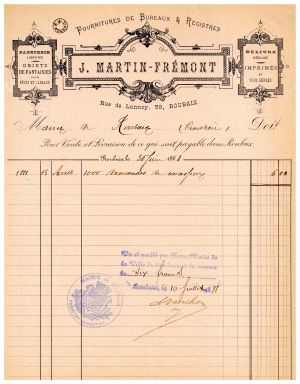 FOURNITURES DE BUREAUX & REGISTRES
PAPETERIE
OBJETS
DE FANTAISIES
POUR
FÊTES ET CADEAUX
J. MARTIN-FRÉMONT
Rue de Lannoy, 55, ROUBAIX
RELIURE
RÉGLURE
IMPRIMÉS
EN
TOUS GENRES
Mairie de Roubaix Doit
Pour Vente et Livraison de ce qui suit payable dans Roubaix
Roubaix, le 30 Juin 1888
1888 15 Avril 1000 demandes de 6.00
Vu et arrêté par Nous, Maire de
la Ville de Roubaix à la somme
de Six francs
Roubaix, le 10 Juillet
MAIRIE DE ROUBAIX